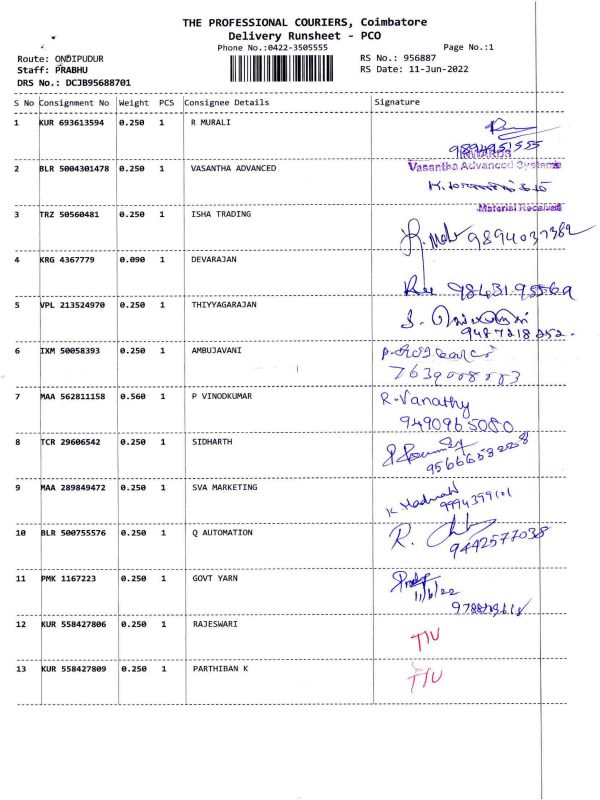 THE PROFESSIONAL COURIERS, Coimbatore
Delivery Runsheet - PCO
Phone No.:0422-3505555
Page No.:1
Route: ONDIPUDUR
RS No.: 956887
Staff: PRABHU
RS Date: 11-Jun-2022
DRS No.: DCJB95688701
S No Consignment No Weight PCS Consignee Details Signature
1 KUR 693613594 0.250 1 R MURALI
9894951555
INWARDS
2 BLR 5004301478 0.250 1 VASANTHA ADVANCED
Vasantha Advanced Systems
Material Received
3 TRZ 50560481 0.250 1 ISHA TRADING
9894037382
4 KRG 4367779 0.090 1 DEVARAJAN
9843195569
5 VPL 213524970 0.250 1 THIYYAGARAJAN
9487218252.
6 IXM 50058393 0.250 1 AMBUJAVANI
7 MAA 562811158 0.560 1 P VINODKUMAR
R. Vanathy
9490965080
8 TCR 29606542 0.250 1 SIDHARTH
9566658228
9 MAA 289849472 0.250 1 SVA MARKETING
9994399101
10 BLR 500755576 0.250 1 Q AUTOMATION
9442577038
11 PMK 1167223 0.250 1 GOVT YARN
11/6/22
12 KUR 558427806 0.250 1 RAJESWARI
13 KUR 558427809 0.250 1 PARTHIBAN K